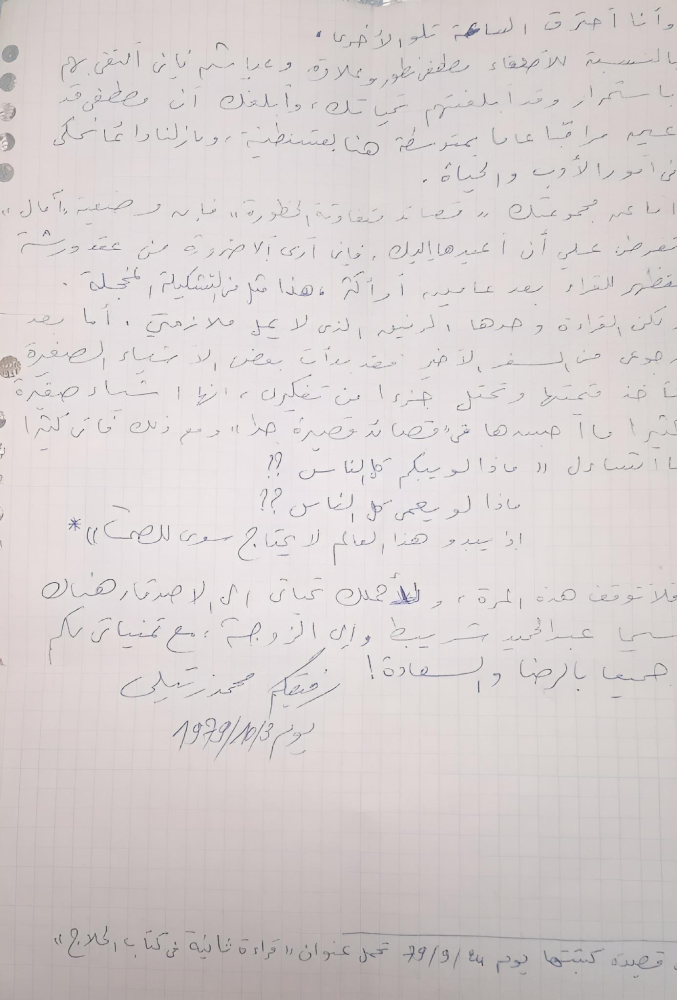 وأنا أحترق الساعة تلو الأخرى.
بالنسبة للأصدقاء مصطفى نطور وعلاوة وعياشم فإني ألتقي بهم
باستمرار وقد أبلغتهم تحياتك، وأبلغك أن مصطفى قد
عين مراقبا عاما بمتوسطة هنا بقسنطينة، ومازلنا دائما نحكي
في أمور الأدب والحياة.
أما عن مجموعتك «قصائد متفاوتة الخطورة» فإن وضعية «آمال»
تفرض علي أن أعيدها إليك، فإني أرى ألا ضرورة من عقد ورشة
لتظهر للقراء بعد عامين أو أكثر، هذا مثل في التشكيلة المخجلة.
وتكن القراءة وحدها الرفيق الذي لا يمل ملازمتي. أما بعد
رجوعي من السفر الأخير فقد بدأت بعض الأشياء الصغيرة
تأخذ قيمتها وتحتل جزءا من تفكيري، إنها أشياء صغيرة
كثيرا ما أجسدها في «قصائد قصيرة جدا» ومع ذلك فإني كثيرا
ما أتساءل «ماذا لو يبكم كل الناس ؟؟
ماذا لو يعمى كل الناس ؟؟
إذ يبدو هذا العالم لا يحتاج سوى للصمت» *
فلأتوقف هذه المرة، ولأحملك تحياتي إلى الأصدقاء هناك
سيما عبد الحميد شريبط وإلى الزوجة، مع تمنياتي لكم
جميعا بالرضا والسعادة!
رفيقكم محمد زتيلي
يوم 1979/10/3
قصيدة كتبتها يوم 79/9/24 تحمل عنوان «قراءة ثانية في كتاب الحلاج»